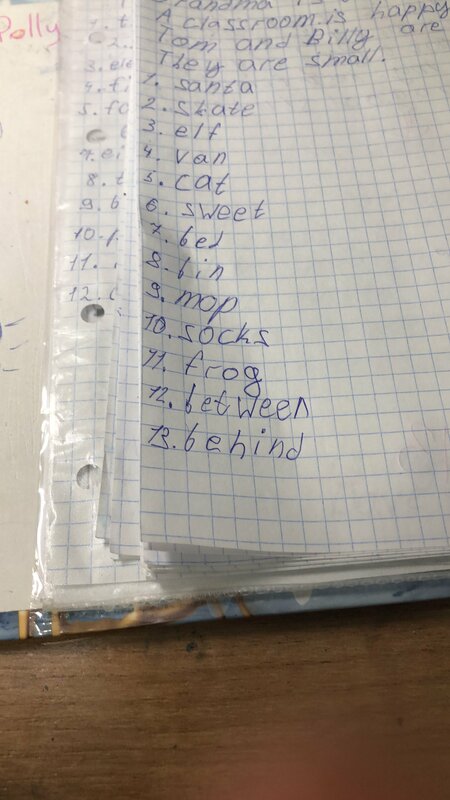 Polly
Grandma is
A classroom is happy
Tom and Billy are
They are small.
1. santa
2. skate
3. elf
4. van
5. cat
6. sweet
7. bed
8. bin
9. mop
10. socks
11. frog
12. between
13. behind